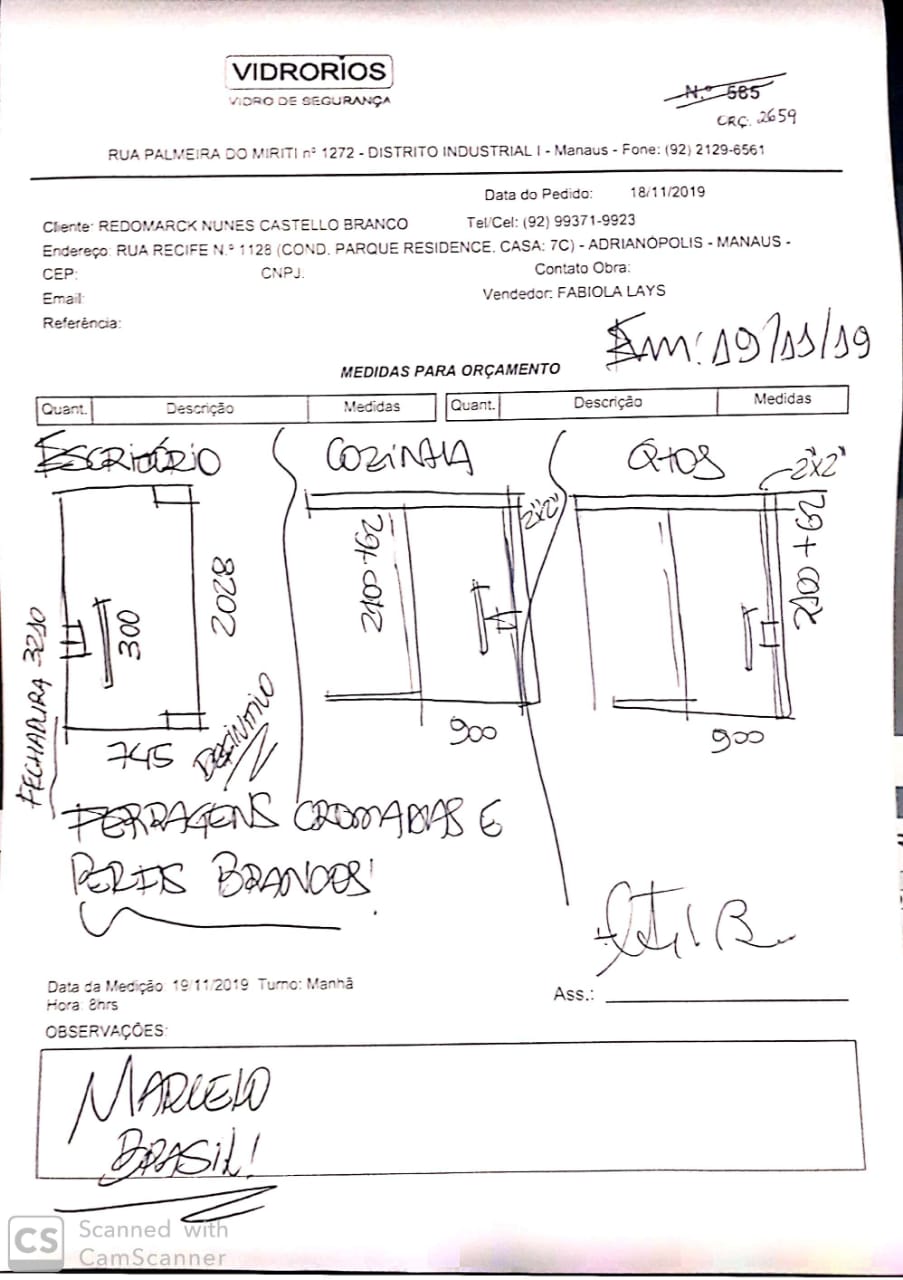 VIDRORIOS
VIDRO DE SEGURANÇA
N.º 585
ORÇ. 2659
RUA PALMEIRA DO MIRITI nº 1272 - DISTRITO INDUSTRIAL I - Manaus - Fone: (92) 2129-6561
Data do Pedido: 18/11/2019
Cliente: REDOMARCK NUNES CASTELLO BRANCO Tel/Cel: (92) 99371-9923
Endereço: RUA RECIFE N.º 1128 (COND. PARQUE RESIDENCE. CASA: 7C) - ADRIANÓPOLIS - MANAUS -
CEP: CNPJ. Contato Obra:
Email: Vendedor: FABIOLA LAYS
Referência:
Em: 19/11/19
MEDIDAS PARA ORÇAMENTO
Quant. Descrição Medidas Quant. Descrição Medidas
ESCRITÓRIO COZINHA QTOS
2"x2"
2"x2"
2100+62
2100+62
2028
300
FECHADURA 3210
745
DEFINITIVO
900
900
FERRAGENS CROMADAS E
PERFIS BRANCOS!
Data da Medição: 19/11/2019 Turno: Manhã
Hora: 8hrs
Ass.:
OBSERVAÇÕES:
MARCELO
BRASIL!
CS Scanned with
CamScanner